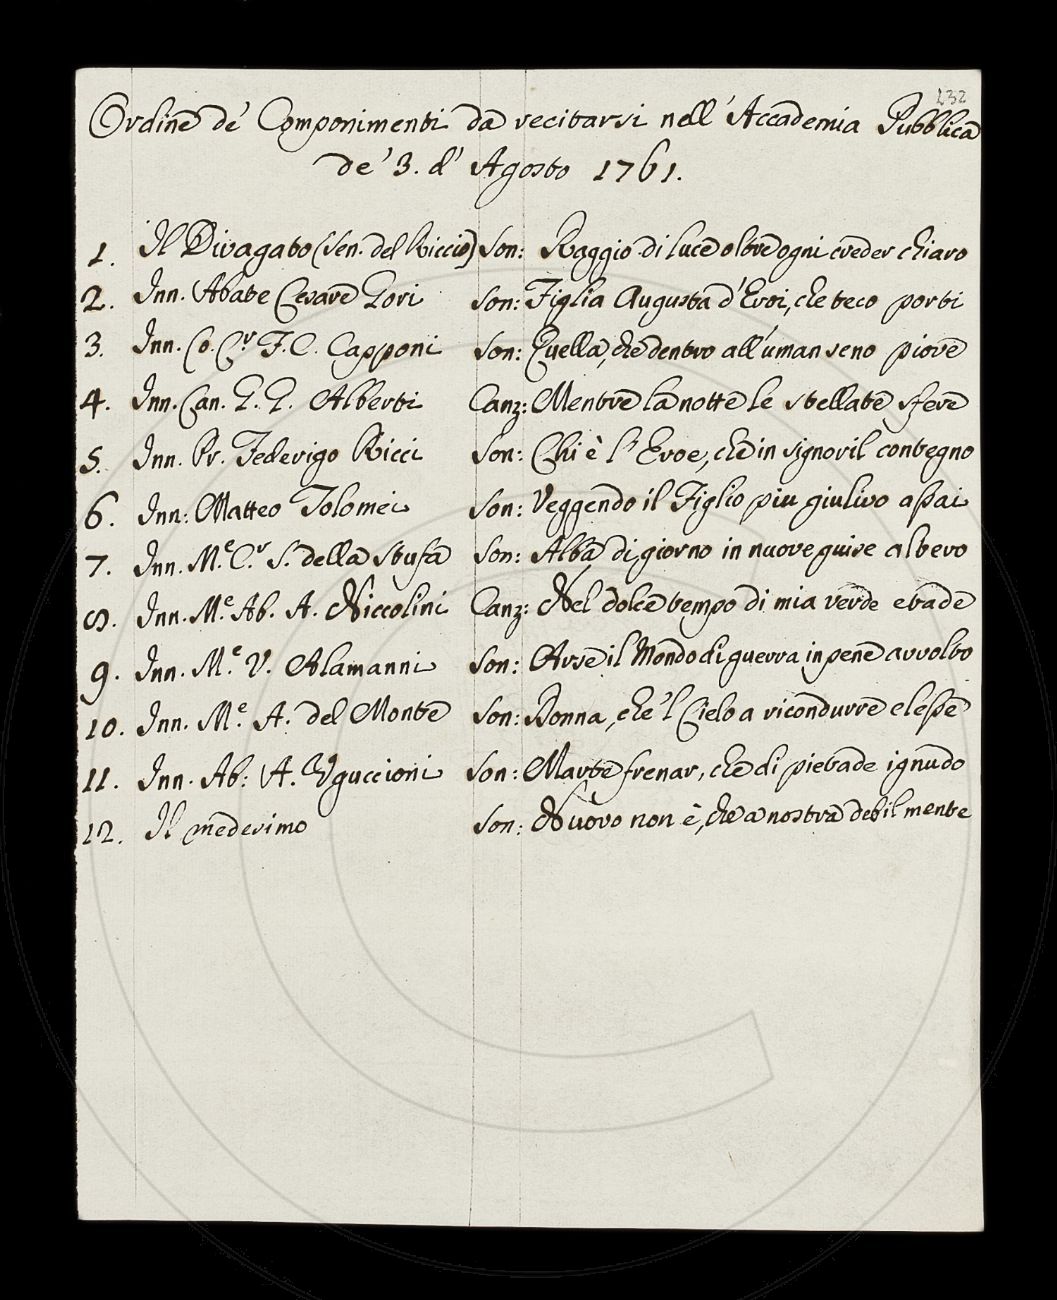 232
Ordine de' Componimenti da recitarsi nell' Accademia Pubblica
de' 3. d' Agosto 1761.
1. Il Divagato (Sen. del Riccio) Son: Raggio di luce oltre ogni creder chiaro
2. Inn. Abate Cesare Gori Son: Figlia Augusta d'Eroi, che teco porti
3. Inn. Co. Cr. F. C. Capponi Son: Quella, che dentro all'uman seno piove
4. Inn. Can. G. G. Alberti Canz: Mentre la notte le stellate sfere
5. Inn. Pr. Federigo Ricci Son: Chi è l'Eroe, che in signoril contegno
6. Inn: Matteo Tolomei Son: Veggendo il Figlio piu giulivo assai
7. Inn. Me. Cr. S. della Stufa Son: Alba di giorno in nuove guise altero
8. Inn. Me. Ab. A. Niccolini Canz: Nel dolce tempo di mia verde etade
9. Inn. Me. V. Alamanni Son: Arse il Mondo di guerra in pene avvolto
10. Inn. Me. A. del Monte Son: Donna, che 'l Cielo a ricondurre elesse
11. Inn. Ab: A. Uguccioni Son: Marte frenar, che di pietade ignudo
12. Il medesimo Son: Nuovo non è, che a nostra debil mente